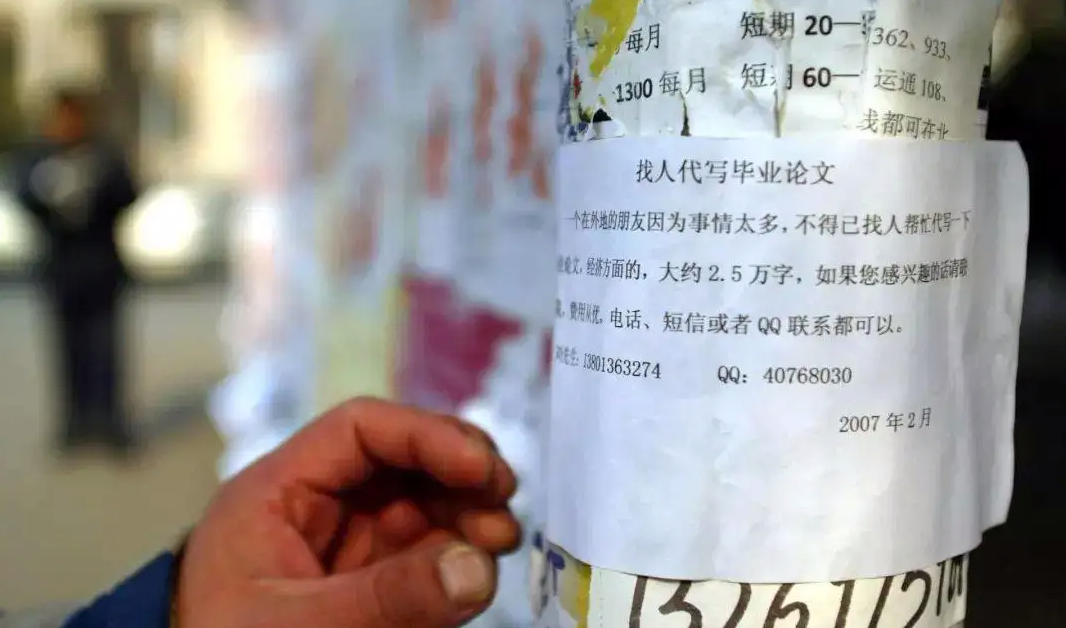 每月 短期 20— 362、933、
1300 每月 短期 60— 运通 108、
我都可在北
找人代写毕业论文
一个在外地的朋友因为事情太多，不得已找人帮忙代写一下
论文，经济方面的，大约 2.5 万字，如果您感兴趣的话请联
费用从优，电话、短信或者 QQ 联系都可以。
先生：13801363274 QQ：40768030
2007 年 2 月